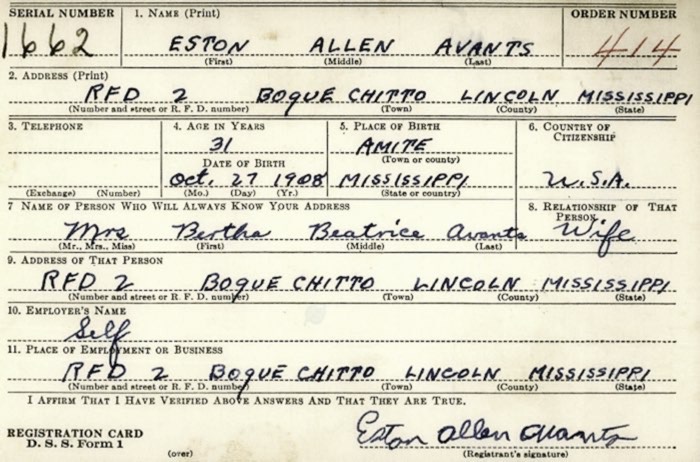 SERIAL NUMBER 1. NAME (Print) ORDER NUMBER
1662 ESTON ALLEN AVANTS 414
(First) (Middle) (Last)
2. ADDRESS (Print)
RFD 2 BOQUE CHITTO LINCOLN MISSISSIPPI
(Number and street or R. F. D. number) (Town) (County) (State)
3. TELEPHONE 4. AGE IN YEARS 5. PLACE OF BIRTH 6. COUNTRY OF
CITIZENSHIP
31 AMITE
DATE OF BIRTH (Town or county)
Oct. 27 1908 MISSISSIPPI U.S.A.
(Exchange) (Number) (Mo.) (Day) (Yr.) (State or country)
7 NAME OF PERSON WHO WILL ALWAYS KNOW YOUR ADDRESS 8. RELATIONSHIP OF THAT
PERSON
Mrs Bertha Beatrice Avants Wife
(Mr., Mrs., Miss) (First) (Middle) (Last)
9. ADDRESS OF THAT PERSON
RFD 2 BOQUE CHITTO LINCOLN MISSISSIPPI
(Number and street or R. F. D. number) (Town) (County) (State)
10. EMPLOYER'S NAME
Self
11. PLACE OF EMPLOYMENT OR BUSINESS
RFD 2 BOQUE CHITTO LINCOLN MISSISSIPPI
(Number and street or R. F. D. number) (Town) (County) (State)
I AFFIRM THAT I HAVE VERIFIED ABOVE ANSWERS AND THAT THEY ARE TRUE.
REGISTRATION CARD Eston Allen Avants
D. S. S. Form 1 (over) (Registrant's signature)